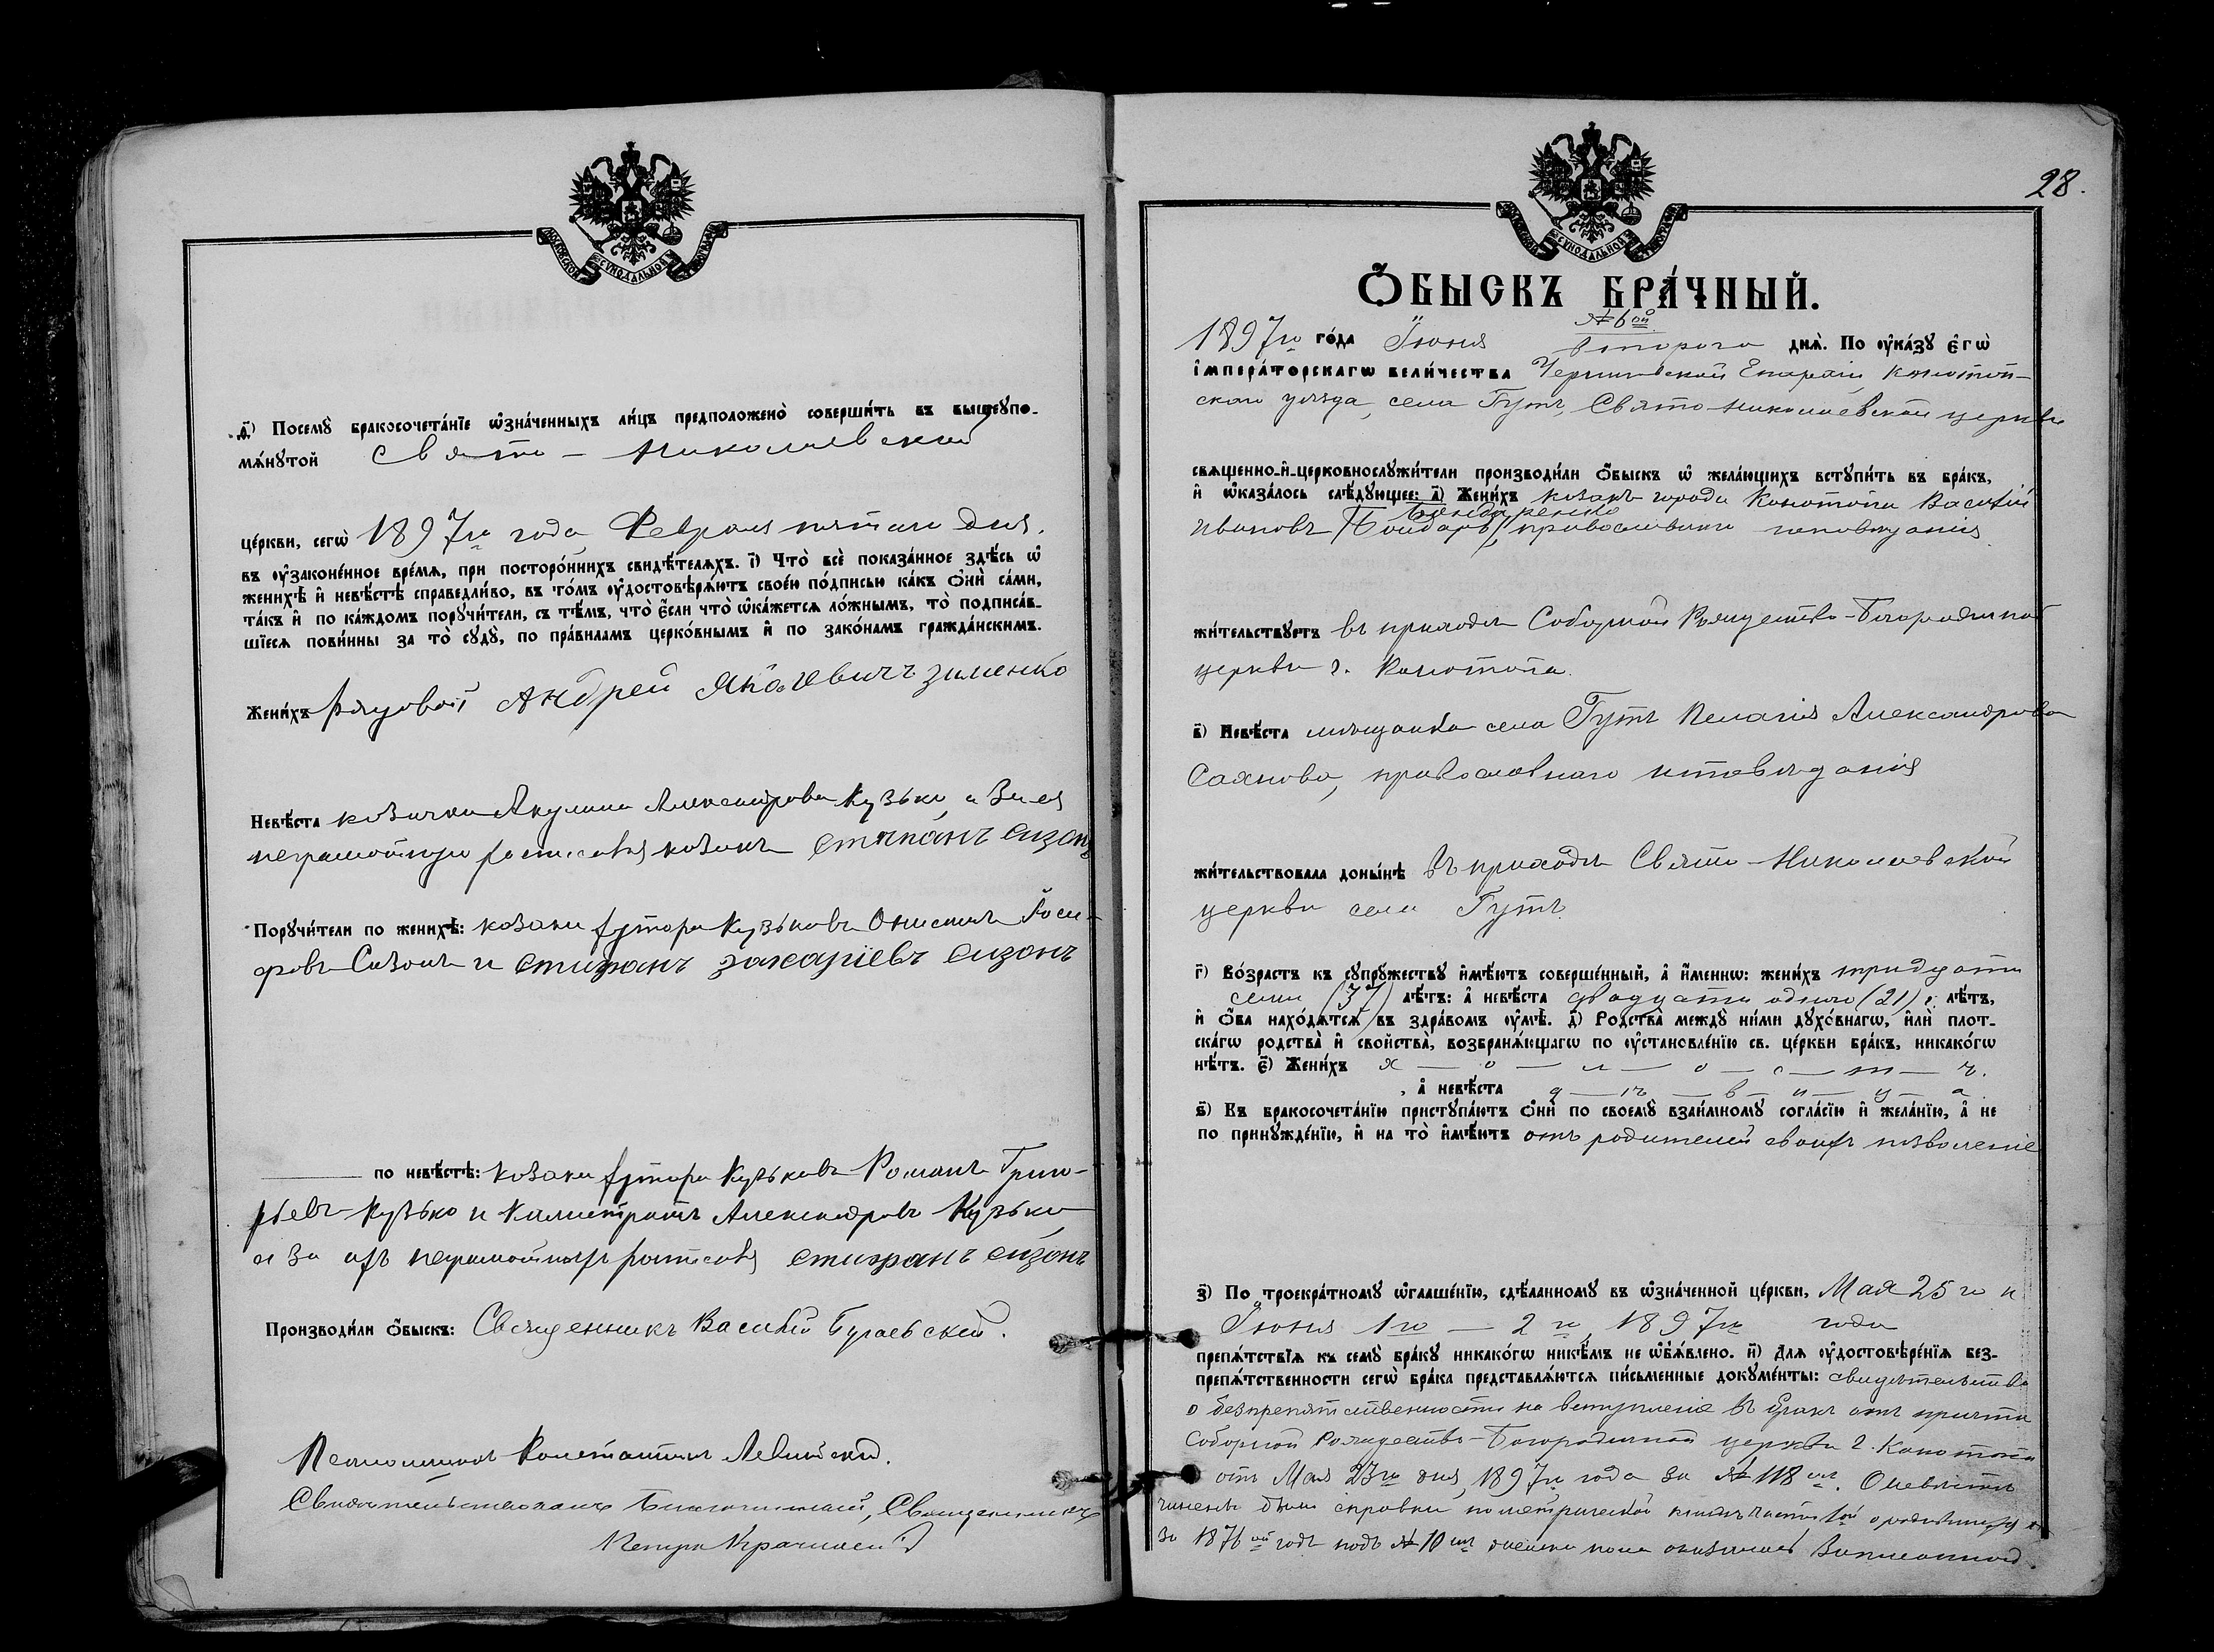 МОСКОВСКОЙ СѴНОДАЛЬНОЙ ТѴПОГРАФІИ
д҃і) Посемꙋ̀ бракосочета́нїе ѡ҆зна́ченныхъ ли́цъ предположено̀ соверши́ть въ вышеупо-
мѧ́нꙋтой Свято-Николаевской
це́ркви, сегѡ̀ 1897го года Февраля пятаго дня.
въ ᲂу҆законе́нное вре́мѧ, при посторо́ннихъ свидѣ́телѧхъ. і҃) Что̀ всѐ показа́нное здѣ́сь ѡ҆
женихѣ̀ и҆ невѣ́стѣ справедли́во, въ то́мъ ᲂу҆достовѣрѧ́ютъ свое́ю по́дписью ка́къ ѻ҆нѝ са́ми,
та́къ и҆ по ка́ждомъ порꙋчи́тели, съ тѣ́мъ, что̀ є҆́сли что̀ ѡ҆ка́жетсѧ ло́жнымъ, то̀ подписа́в-
шїесѧ пови́нны за то̀ сꙋдꙋ̀, по пра́виламъ церко́внымъ и҆ по зако́намъ гражда́нскимъ.
Жени́хъ Рядовой Андрей Яковлевичъ Зименко
Невѣ́ста козачка Акулина Александрова Кузько, а за ея
неграмотную росписався козакъ Стяпанъ Сизонъ
Порꙋчи́тели по женихѣ̀: козаки хутора Кузьковъ Онисимъ Іоси-
фовъ Сизонъ и Стифанъ Захаріевъ Сизонъ
по невѣ́стѣ: козаки хутора Кузьковъ Романъ Григо-
рьевъ Кузько и Калистратъ Александровъ Кузько
а за ихъ неграмотныхъ росписався Стифанъ Сизонъ
Производи́ли ѻ҆́быскъ: Священникъ Василій Бугаевский.
Псаломщикъ Константинъ Левитскій.
Свидѣтельствовалъ Благочинный, Священникъ
Петръ
28.
МОСКОВСКОЙ СѴНОДАЛЬНОЙ ТѴПОГРАФІИ
Ѻ҆́БЫСКЪ БРА́ЧНЫЙ.
№ 6ой
1897го го́да Іюня второго днѧ̀. По ᲂу҆ка́зꙋ є҆гѡ̀
і҆мпера́торскагѡ вели́чества Черниговской Епархіи, Конотоп-
скаго уѣзда, села Гутъ, Свято-Николаевской церкви
свѧщенно-и҆-церковнослꙋжи́тели производи́ли ѻ҆́быскъ ѡ҆ жела́ющихъ встꙋпи́ть въ бра́къ,
и҆ ѡ҆каза́лось слѣ́дꙋющее: а҃) Жени́хъ козакъ города Конотопа Василій
Бондаренко
Ивановъ (Бондарь), православнаго исповѣданія
жи́тельствꙋетъ въ приходѣ Соборной Рождество-Богородичной
церкви г. Конотопа.
в҃) Невѣ́ста мѣщанка села Гутъ Пелагія Александрова
Сахнова, православнаго исповѣданія
жи́тельствовала доны́нѣ въ приходѣ Свято-Николаевской
церкви села Гутъ.
г҃) Во́зрастъ къ сꙋпрꙋ́жествꙋ и҆мѣ́ютъ соверше́нный, а҆ и҆́меннѡ: жени́хъ тридцати
семи (37) лѣ́тъ: а҆ невѣ́ста двадцати одного (21) г. лѣ́тъ,
и҆ ѻ҆́ба нахо́дѧтсѧ въ здра́вомъ ᲂу҆мѣ̀. д҃) Родства̀ междꙋ̀ ни́ми дꙋхо́внагѡ, и҆лѝ плот-
ска́гѡ родства̀ и҆ сво́йства̀, возбранѧ́ющагѡ по ᲂу҆становле́нїю св. це́ркви бра́къ, никако́гѡ
нѣ́тъ. є҃) Жени́хъ х—о—л—о—с—т—ъ.
, а҆ невѣ́ста д—ѣ—в—и—ц—а.
ѕ҃) Къ бракосочета́нїю пристꙋпа́ютъ ѻ҆нѝ по своемꙋ̀ взаи́мномꙋ согла́сїю и҆ жела́нїю, а҆ не
по принꙋжде́нїю, и҆ на то̀ и҆мѣ́ютъ отъ родителей своихъ позволеніе
з҃) По троекра́тномꙋ ѡ҆глаше́нїю, сдѣ́ланномꙋ въ ѡ҆зна́ченной це́ркви, Мая 25го и
Іюня 1го — 2го, 1897го года
препѧ́тствїѧ къ семꙋ̀ бра́кꙋ никако́гѡ никѣ́мъ не ѡ҆б̾ѧ́влено. и҃) Длѧ ᲂу҆достовѣре́нїѧ без-
препѧ́тственности сегѡ̀ бра́ка представлѧ́ютсѧ пи́сьменные докꙋме́нты: свидѣтельство
о безпрепятственности на вступленіе въ бракъ отъ причта
Соборной Рождество-Богородичной церкви г. Конотопа
отъ Мая 23го дня, 1897го года за № 118мъ. О невѣстѣ
справки по метрической книгѣ части 1ой о родившихся
за 1876ой годъ подъ № 10мъ оказалась записанной.